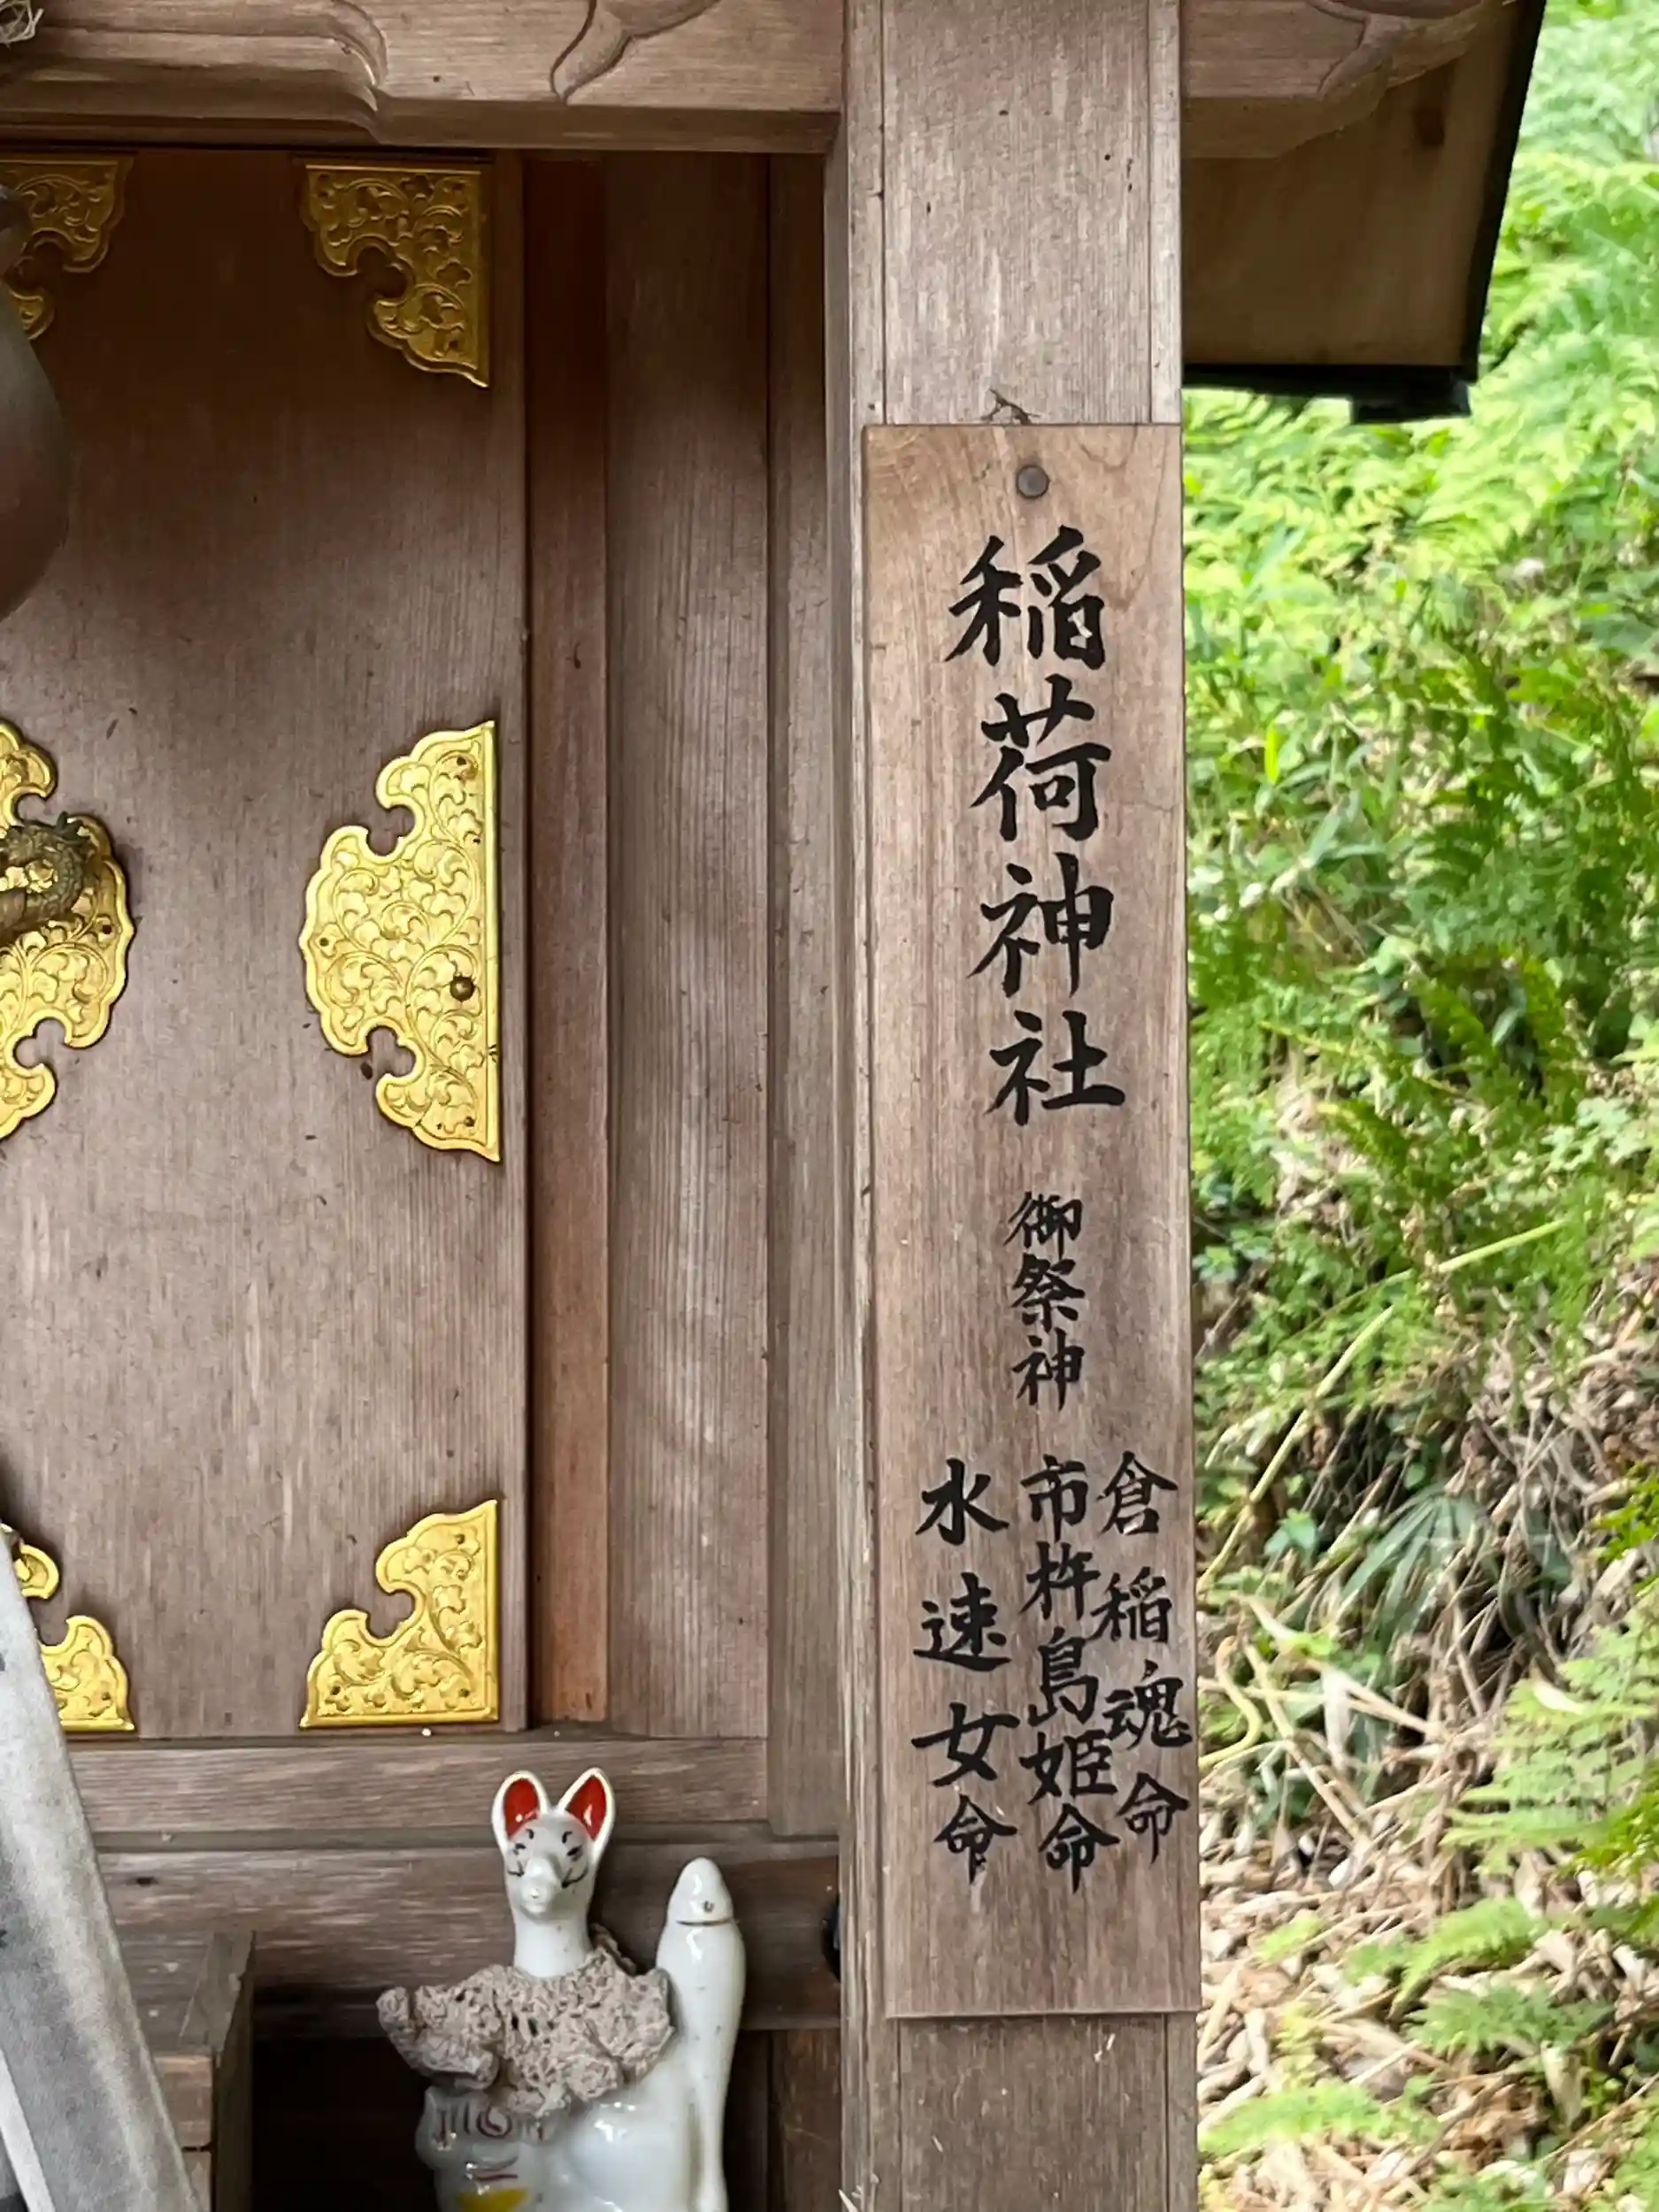 稲荷神社
御祭神
倉稲魂命
市杵島姫命
水速女命